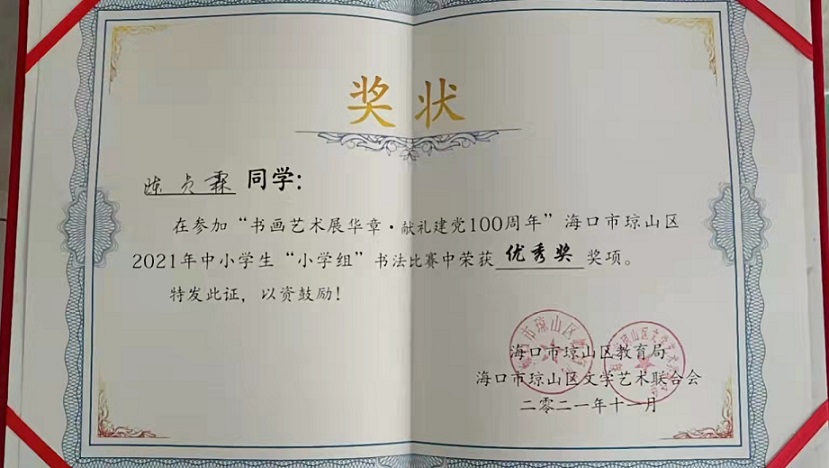 奖状
陈贞霖 同学:
在参加“书画艺术展华章·献礼建党100周年”海口市琼山区
2021年中小学生“小学组”书法比赛中荣获 优秀奖 奖项。
特发此证，以资鼓励！
海口市琼山区教育局
海口市琼山区文学艺术联合会
二零二一年十一月